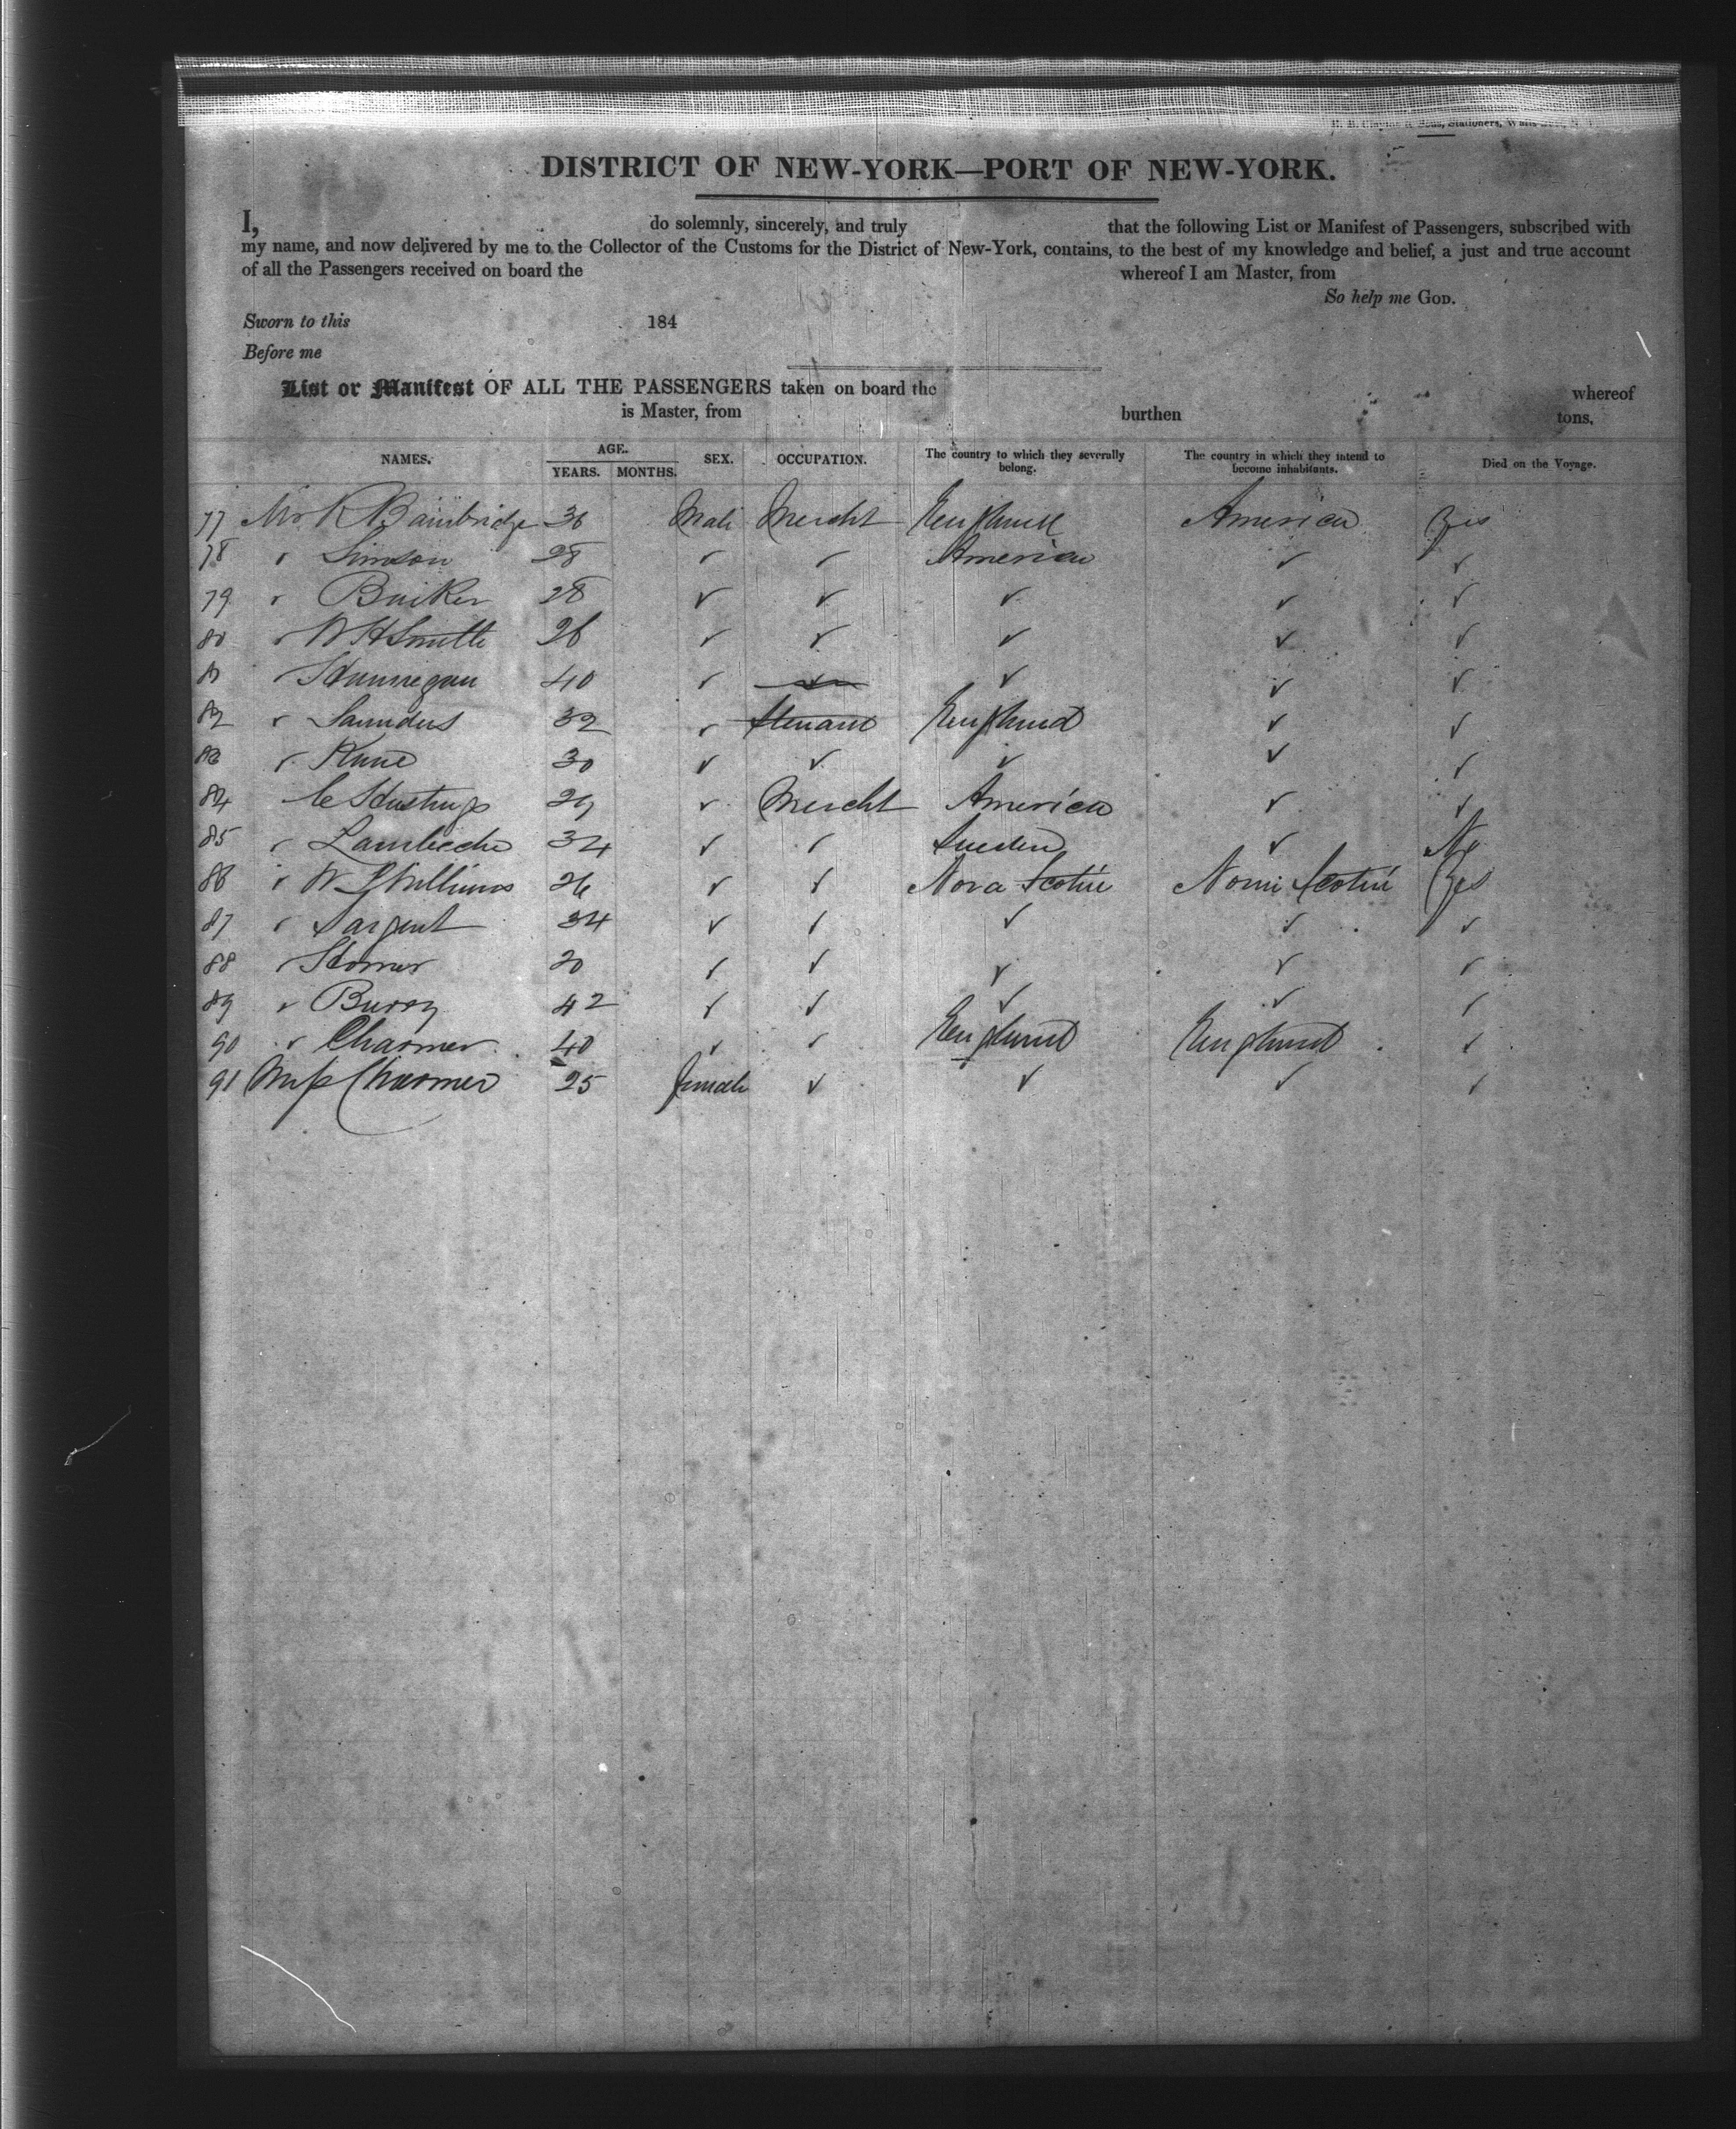 Stationers,
DISTRICT OF NEW-YORK—PORT OF NEW-YORK.
I, do solemnly, sincerely, and truly that the following List or Manifest of Passengers, subscribed with
my name, and now delivered by me to the Collector of the Customs for the District of New-York, contains, to the best of my knowledge and belief, a just and true account
of all the Passengers received on board the whereof I am Master, from
So help me GOD.
Sworn to this 184
Before me
List or Manifest OF ALL THE PASSENGERS taken on board the whereof
is Master, from burthen tons.
NAMES. AGE. YEARS. MONTHS. SEX. OCCUPATION. The country to which they severally belong. The country in which they intend to become inhabitants. Died on the Voyage.
77 Mr R Bainbridge 36 Male Mercht England America Yes
78 ✓ Simson 28 ✓ ✓ America ✓ ✓
79 ✓ 28 ✓ ✓ ✓ ✓ ✓
80 ✓ W H Smith 26 ✓ ✓ ✓ ✓ ✓
81 ✓ Hunnegan 40 ✓ ✓ ✓ ✓ ✓
82 ✓ Saunders 32 ✓ Steward England ✓ ✓
83 ✓ 30 ✓ ✓ ✓ ✓ ✓
84 C Hastings 29 ✓ Mercht America ✓ ✓
85 ✓ 34 ✓ ✓ Sweden ✓ No
86 ✓ W Williams 26 ✓ ✓ Nova Scotia Nova Scotia Yes
87 ✓ Sargent 34 ✓ ✓ ✓ ✓ ✓
88 ✓ Homer 20 ✓ ✓ ✓ ✓ ✓
89 ✓ Burry 42 ✓ ✓ ✓ ✓ ✓
90 ✓ Charmer 40 ✓ ✓ England England ✓
91 Miss Charmer 25 Female ✓ ✓ ✓ ✓